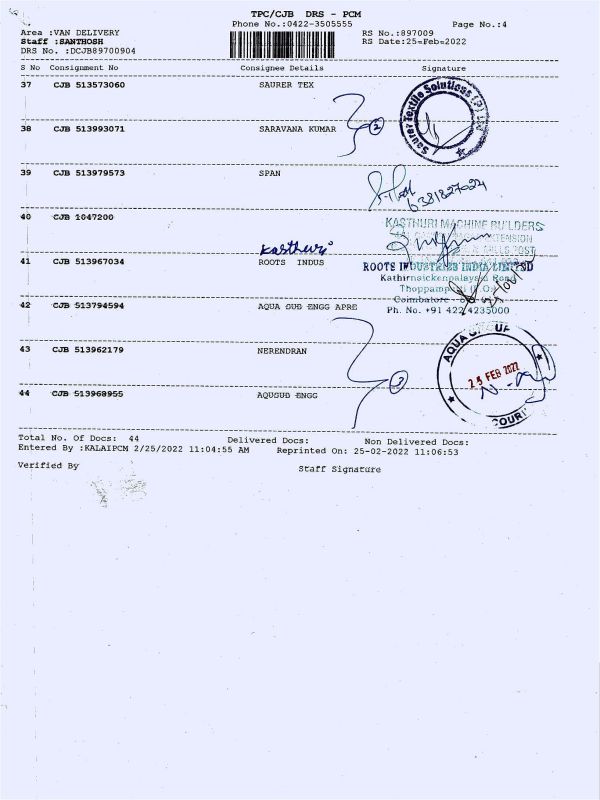 TPC/CJB DRS - PCM
Phone No.:0422-3505555 Page No.:4
Area :VAN DELIVERY RS No.:897009
Staff :SANTHOSH RS Date:25-Feb-2022
DRS No. :DCJB89700904
S No Consignment No Consignee Details Signature
37 CJB 513573060 SAURER TEX
Saurer Textile Solutions (P) Ltd
38 CJB 513993071 SARAVANA KUMAR 2
39 CJB 513979573 SPAN
6381827024
40 CJB 1047200
KASTHURI MACHINE BUILDERS
Kasthuri
41 CJB 513967034 ROOTS INDUS
ROOTS INDUSTRIES INDIA LIMITED
Kathirnaickenpalayam Road
Coimbatore
Ph. No. +91 422 4235000
42 CJB 513794594 AQUA SUB ENGG APRE
AQUA GROUP
43 CJB 513962179 NERENDRAN 3
25 FEB 2022
44 CJB 513968955 AQUSUB ENGG
Total No. Of Docs: 44 Delivered Docs: Non Delivered Docs:
Entered By :KALAIPCM 2/25/2022 11:04:55 AM Reprinted On: 25-02-2022 11:06:53
Verified By Staff Signature